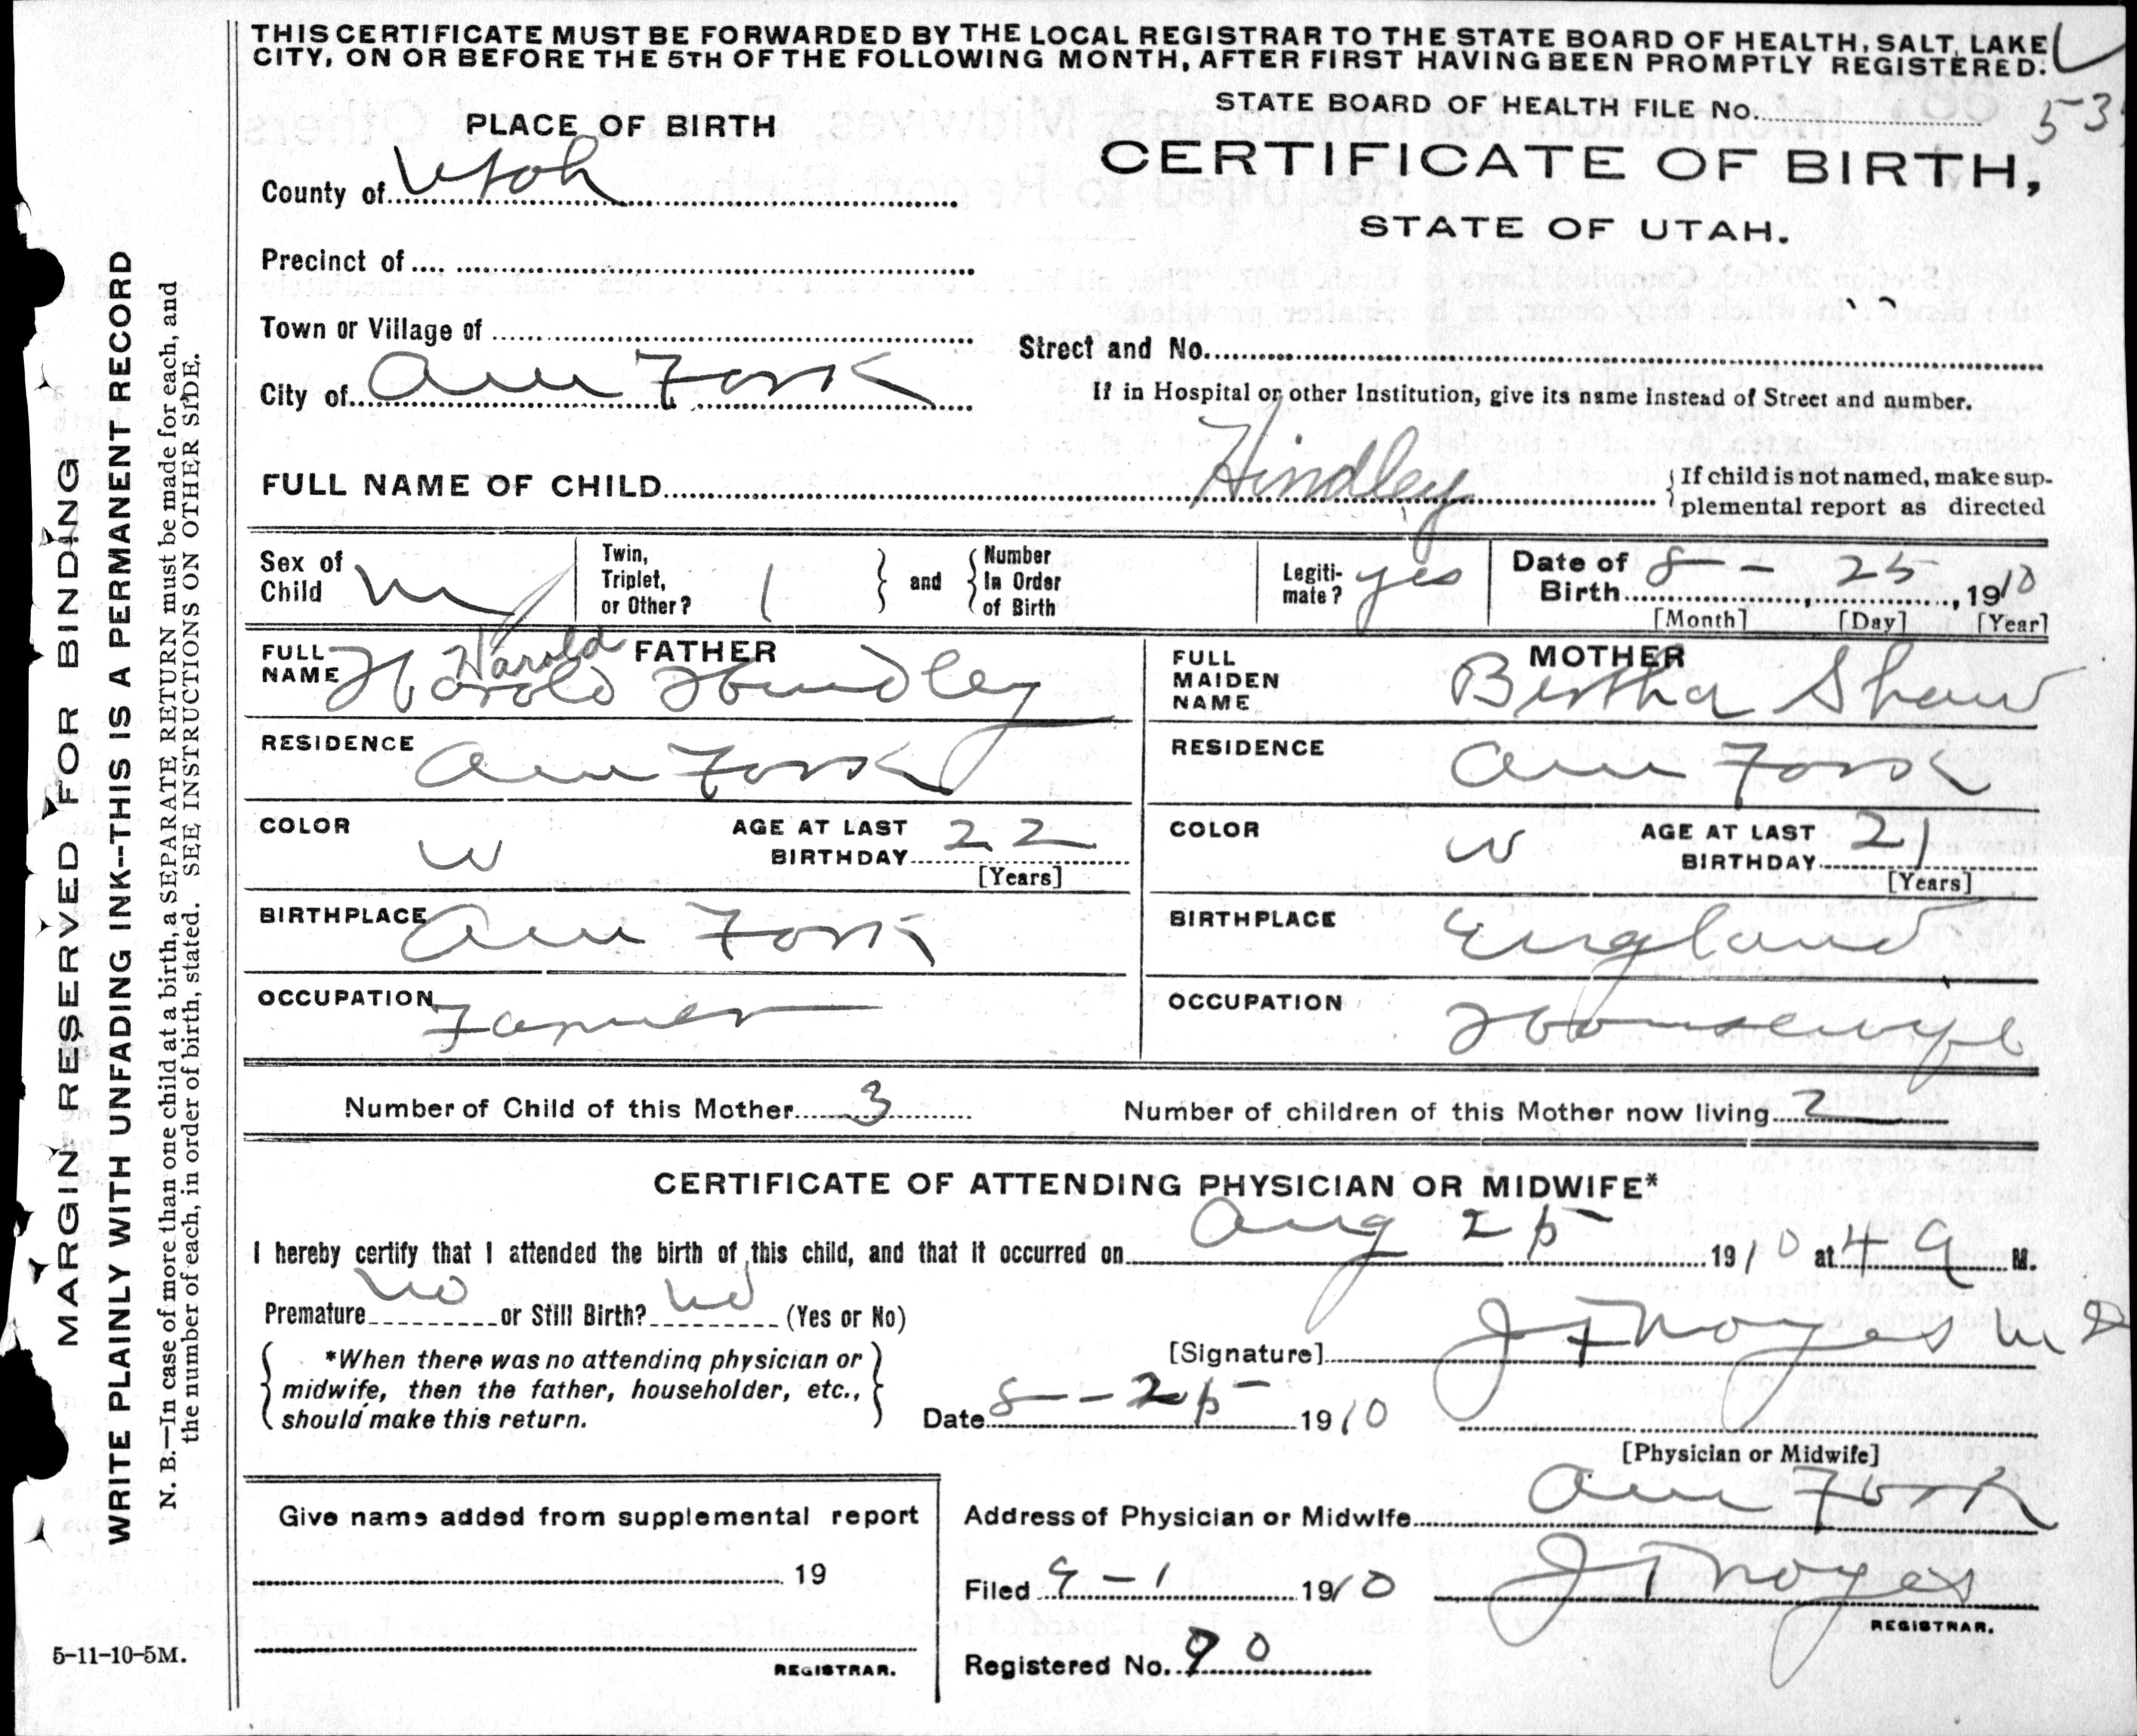 THIS CERTIFICATE MUST BE FORWARDED BY THE LOCAL REGISTRAR TO THE STATE BOARD OF HEALTH, SALT LAKE
CITY, ON OR BEFORE THE 5TH OF THE FOLLOWING MONTH, AFTER FIRST HAVING BEEN PROMPTLY REGISTERED.
STATE BOARD OF HEALTH FILE No. 53
PLACE OF BIRTH
CERTIFICATE OF BIRTH,
STATE OF UTAH.
County of Utah
Precinct of
Town or Village of
Street and No.
City of Am Fork
If in Hospital or other Institution, give its name instead of Street and number.
FULL NAME OF CHILD Hindley
If child is not named, make sup-
plemental report as directed
Sex of Child M
Twin, Triplet, or Other? 1
and
Number In Order of Birth
Legiti-mate? yes
Date of Birth 8 - 25, 1910
[Month] [Day] [Year]
FATHER
FULL NAME Harold Hindley
Harold
RESIDENCE Am Fork
COLOR W
AGE AT LAST BIRTHDAY 22
[Years]
BIRTHPLACE Am Fork
OCCUPATION Farmer
MOTHER
FULL MAIDEN NAME Bertha Shaw
RESIDENCE Am Fork
COLOR W
AGE AT LAST BIRTHDAY 21
[Years]
BIRTHPLACE England
OCCUPATION Housewife
Number of Child of this Mother 3
Number of children of this Mother now living 2
CERTIFICATE OF ATTENDING PHYSICIAN OR MIDWIFE*
I hereby certify that I attended the birth of this child, and that it occurred on Aug 25 1910 at 4 a M.
Premature no or Still Birth? no (Yes or No)
*When there was no attending physician or
midwife, then the father, householder, etc.,
should make this return.
[Signature] J F Noyes M D
Date 8 - 25 1910
[Physician or Midwife]
Give name added from supplemental report
19
REGISTRAR.
Address of Physician or Midwife Am Fork
Filed 9 - 1 1910 J F Noyes
REGISTRAR.
Registered No. 90
MARGIN RESERVED FOR BINDING
WRITE PLAINLY WITH UNFADING INK--THIS IS A PERMANENT RECORD
N. B.—In case of more than one child at a birth, a SEPARATE RETURN must be made for each, and
the number of each, in order of birth, stated. SEE INSTRUCTIONS ON OTHER SIDE.
5-11-10-5M.